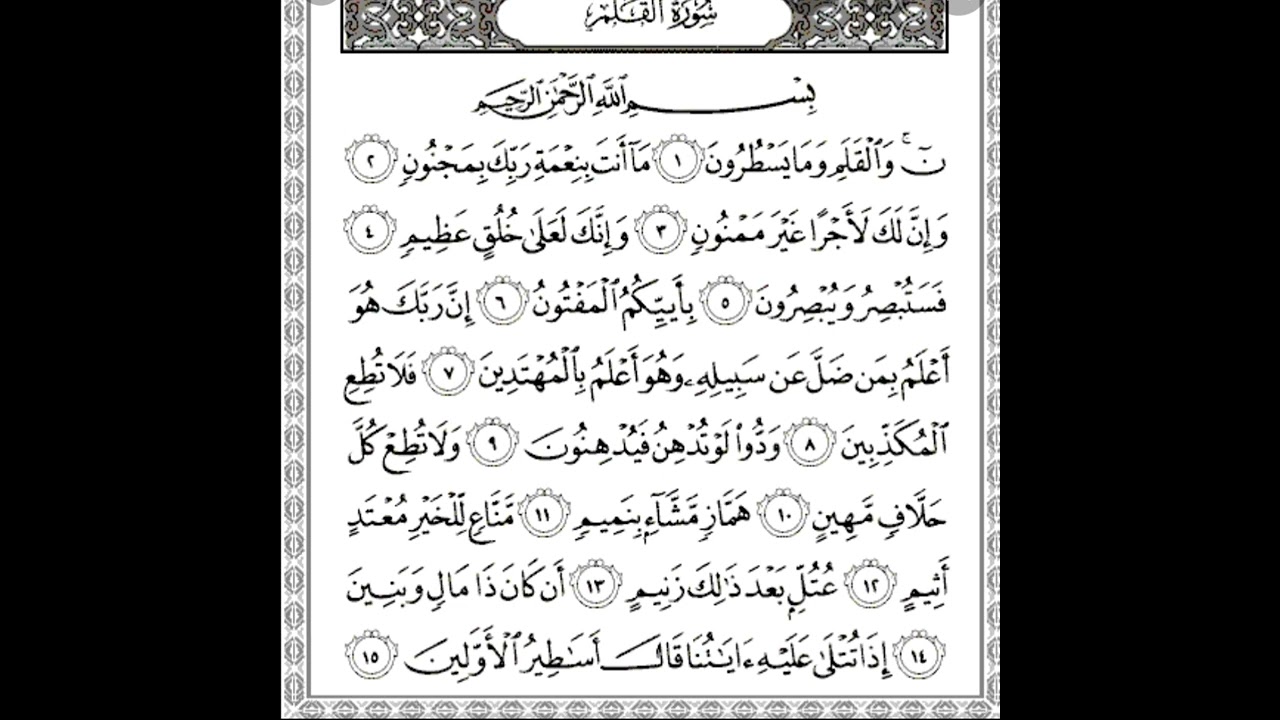 سُورَةُ الْقَلَمِ
بِسْمِ ٱللَّهِ ٱلرَّحْمَٰنِ ٱلرَّحِيمِ
نٓ ۚ وَٱلْقَلَمِ وَمَا يَسْطُرُونَ ١ مَآ أَنتَ بِنِعْمَةِ رَبِّكَ بِمَجْنُونٍ ٢
وَإِنَّ لَكَ لَأَجْرًا غَيْرَ مَمْنُونٍ ٣ وَإِنَّكَ لَعَلَىٰ خُلُقٍ عَظِيمٍ ٤
فَسَتُبْصِرُ وَيُبْصِرُونَ ٥ بِأَييِّكُمُ ٱلْمَفْتُونُ ٦ إِنَّ رَبَّكَ هُوَ
أَعْلَمُ بِمَن ضَلَّ عَن سَبِيلِهِۦ وَهُوَ أَعْلَمُ بِٱلْمُهْتَدِينَ ٧ فَلَا تُطِعِ
ٱلْمُكَذِّبِينَ ٨ وَدُّوا۟ لَوْ تُدْهِنُ فَيُدْهِنُونَ ٩ وَلَا تُطِعْ كُلَّ
حَلَّافٍ مَّهِينٍ ١٠ هَمَّازٍ مَّشَّآءٍۭ بِنَمِيمٍ ١١ مَّنَّاعٍ لِّلْخَيْرِ مُعْتَدٍ
أَثِيمٍ ١٢ عُتُلٍّۭ بَعْدَ ذَٰلِكَ زَنِيمٍ ١٣ أَن كَانَ ذَا مَالٍ وَبَنِينَ
١٤ إِذَا تُتْلَىٰ عَلَيْهِ ءَايَٰتُنَا قَالَ أَسَٰطِيرُ ٱلْأَوَّلِينَ ١٥